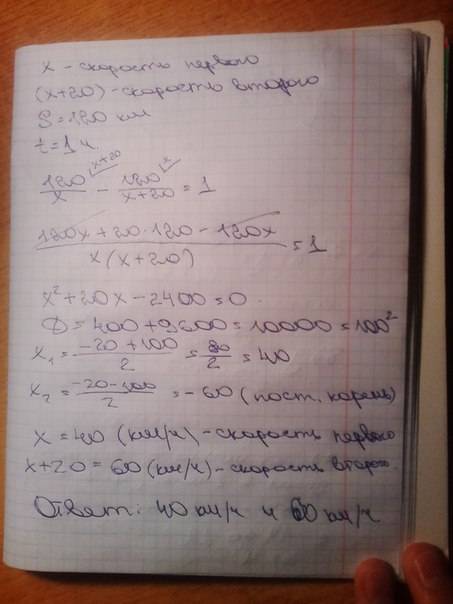 x - скорость первого
(x+20) - скорость второго
S = 120 км
t = 1 ч.
120/x (x+20) - 120/(x+20) (x) = 1
(120x + 20·120 - 120x)/(x(x+20)) = 1
x² + 20x - 2400 = 0
D = 400 + 9600 = 10000 = 100²
x₁ = (-20+100)/2 = 80/2 = 40
x₂ = (-20-100)/2 = -60 (пост. корень)
x = 40 (км/ч) - скорость первого
x+20 = 60 (км/ч) - скорость второго.
Ответ: 40 км/ч и 60 км/ч